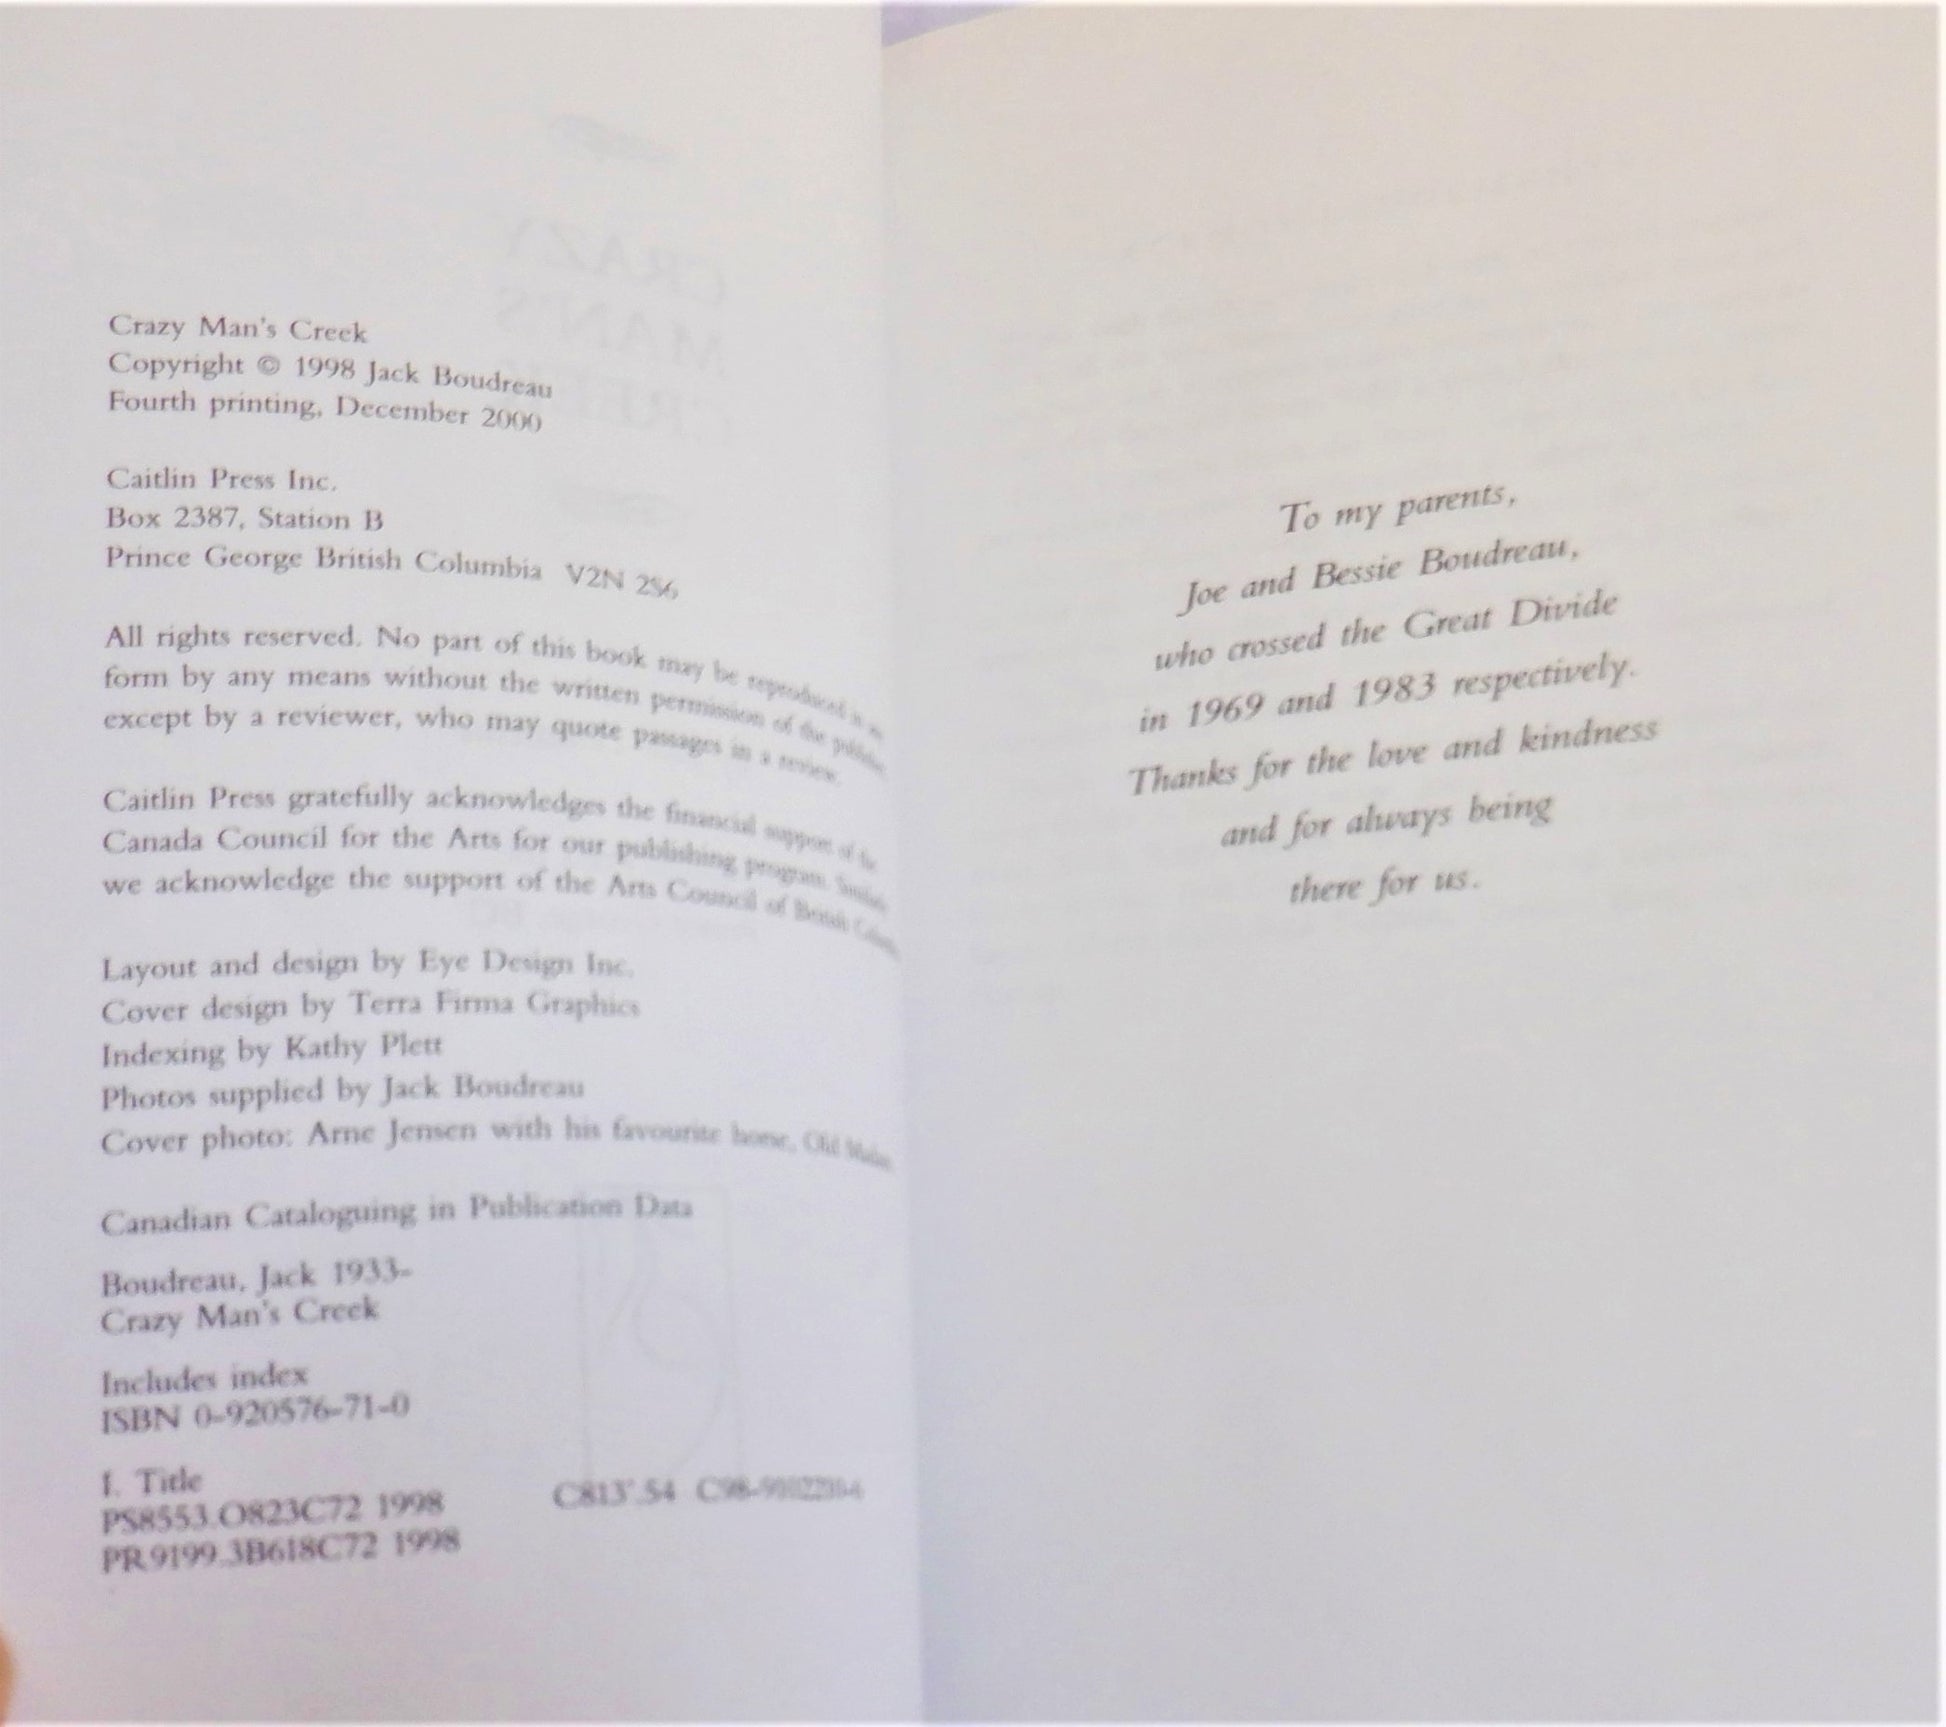 Crazy Man's Creek
Copyright © 1998 Jack Boudreau
Fourth printing, December 2000
Caitlin Press Inc.
Box 2387, Station B
Prince George British Columbia V2N 2S6
All rights reserved. No part of this book may be reproduced in any
form by any means without the written permission of the publisher,
except by a reviewer, who may quote passages in a review.
Caitlin Press gratefully acknowledges the financial support of the
Canada Council for the Arts for our publishing program. Similarly
we acknowledge the support of the Arts Council of British Columbia.
Layout and design by Eye Design Inc.
Cover design by Terra Firma Graphics
Indexing by Kathy Plett
Photos supplied by Jack Boudreau
Cover photo: Arne Jensen with his favourite horse, Old
Canadian Cataloguing in Publication Data
Boudreau, Jack 1933-
Crazy Man's Creek
Includes index
ISBN 0-920576-71-0
I. Title
PS8553.O823C72 1998 C813'.54
PR9199.3B618C72 1998
To my parents,
Joe and Bessie Boudreau,
who crossed the Great Divide
in 1969 and 1983 respectively.
Thanks for the love and kindness
and for always being
there for us.